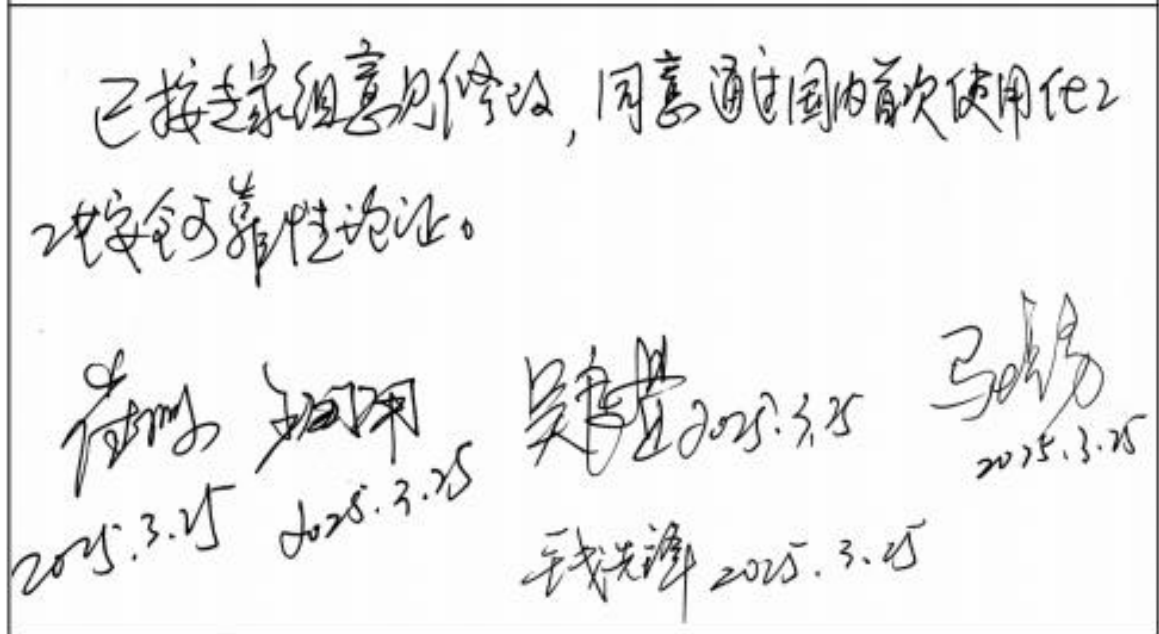 已按专家组意见修改,同意通过国内首次使用化工
工艺安全可靠性论证。
2025.3.25 2025.3.25 2025.3.25 2025.3.25
钱先锋 2025.3.25